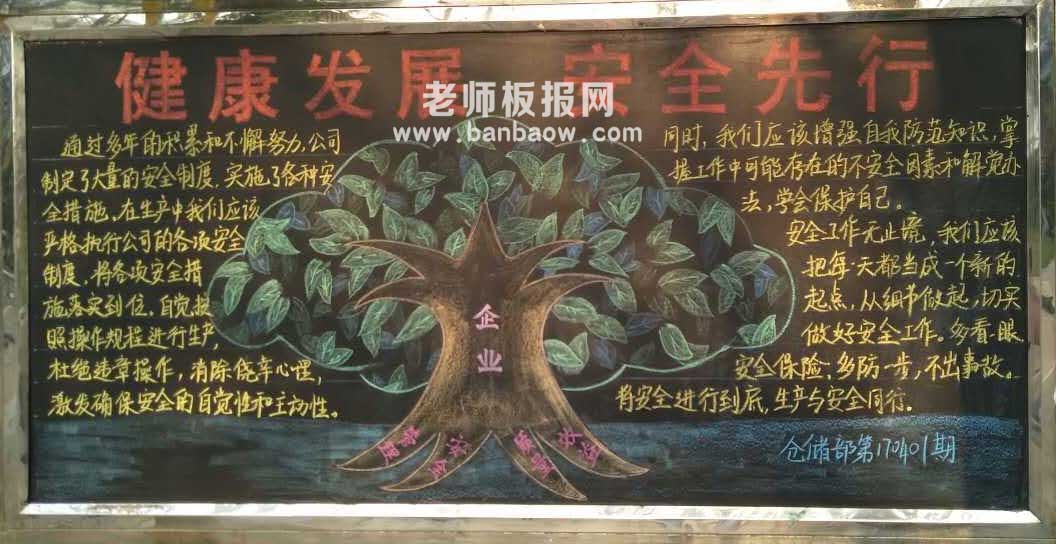 健康发展 安全先行
老师板报网
www.banbaow.com
通过多年的积累和不懈努力,公司
制定了大量的安全制度,实施了各种安
全措施,在生产中我们应该
严格执行公司的各项安全
制度,将各项安全措
施落实到位,自觉按
照操作规程进行生产,
杜绝违章操作,消除侥幸心理,
激发确保安全的自觉性和主动性。
同时,我们应该增强自我防范知识,掌
握工作中可能存在的不安全因素和解觉办
法,学会保护自己。
安全工作无止境,我们应该
把每一天都当成一个新的
起点,从细节做起,切实
做好安全工作。多看一眼
安全保险;多防一步,不出事故。
将安全进行到底,生产与安全同行。
企业
安全
仓储部第170401期